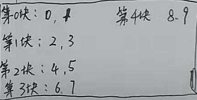 第0块：0,1
第1块：2,3
第2块：4,5
第3块：6.7
第4块 8.9